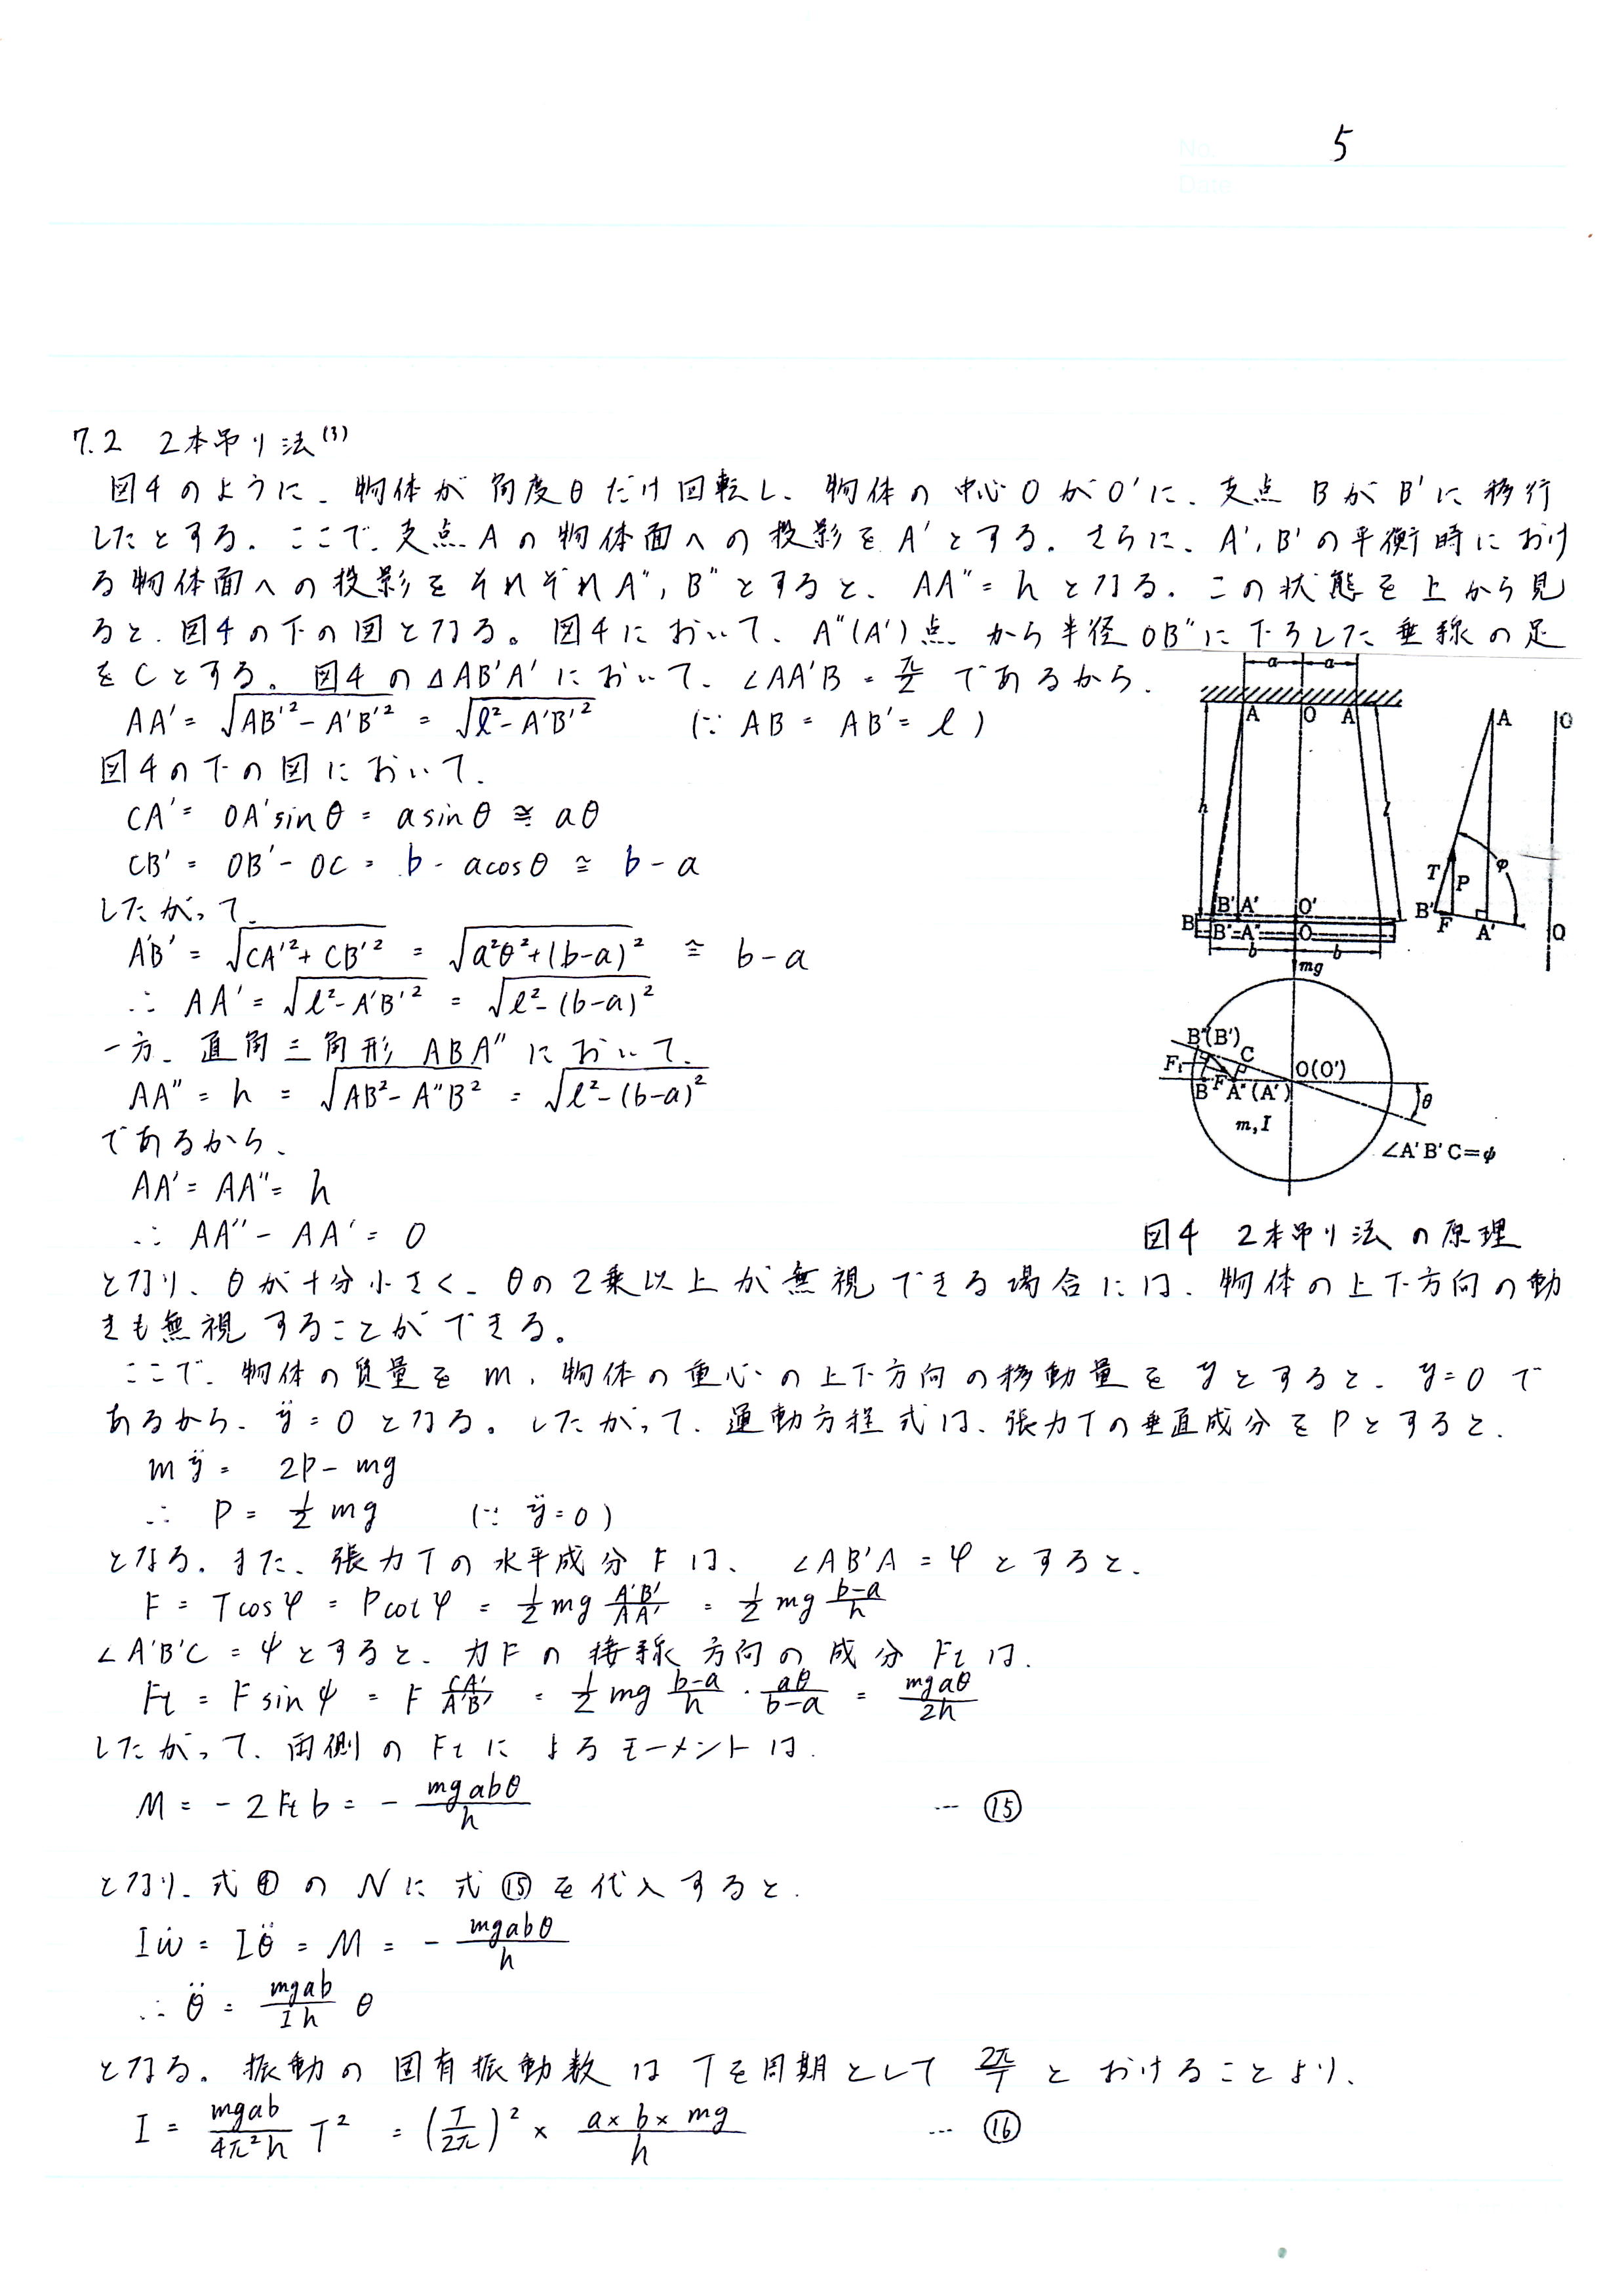 No.
5
Date
7.2 2本吊り法(3)
図4のように、物体が角度θだけ回転し、物体の中心OがO'に、支点BがB'に移行
したとする。ここで、支点Aの物体面への投影をA'とする。さらに、A', B'の平衡時におけ
る物体面への投影をそれぞれA", B"とすると、AA" = hとなる。この状態を上から見
ると、図4の下の図となる。図4において、A"(A')点から半径OB"に下ろした垂線の足
をCとする。図4の△AB'A'において、∠AA'B = π/2 であるから、
AA' = √(AB'² - A'B'²) = √(l² - A'B'²) (∵ AB = AB' = l)
図4の下の図において、
CA' = OA' sinθ = a sinθ ≅ aθ
CB' = OB' - OC = b - a cosθ ≅ b - a
したがって、
A'B' = √(CA'² + CB'²) = √(a²θ² + (b-a)²) ≅ b - a
∴ AA' = √(l² - A'B'²) = √(l² - (b-a)²)
一方、直角三角形ABA"において、
AA" = h = √(AB² - A"B²) = √(l² - (b-a)²)
であるから、
AA' = AA" = h
∴ AA" - AA' = 0
a a
A O A
h l
B B' A' O'
B"=A" O
b b
mg
A O
T P φ
B' F A' O
B"(B') C O(O')
F₁ B F A"(A') θ
m, I
∠A'B'C=ψ
図4 2本吊り法の原理
となり、θが十分小さく、θの2乗以上が無視できる場合には、物体の上下方向の動
きも無視することができる。
ここで、物体の質量をm、物体の重心の上下方向の移動量をyとすると、y=0で
あるから、ÿ=0となる。したがって、運動方程式は、張力Tの垂直成分をPとすると、
mÿ = 2P - mg
∴ P = 1/2 mg (∵ ÿ=0)
となる。また、張力Tの水平成分Fは、∠AB'A = φとすると、
F = T cosφ = P cotφ = 1/2 mg A'B'/AA' = 1/2 mg (b-a)/h
∠A'B'C = ψとすると、力Fの接線方向の成分Ftは、
Ft = F sinψ = F CA'/A'B' = 1/2 mg (b-a)/h · aθ/(b-a) = mgaθ/2h
したがって、両側のFtによるモーメントは、
M = -2Ft b = - mgabθ/h … ⑮
となり、式④のNに式⑮を代入すると、
Iω̇ = Iθ̈ = M = - mgabθ/h
∴ θ̈ = mgab/Ih θ
となる。振動の固有振動数はTを周期として 2π/T とおけることより、
I = mgab/4π²h T² = (T/2π)² × a×b×mg/h … ⑯